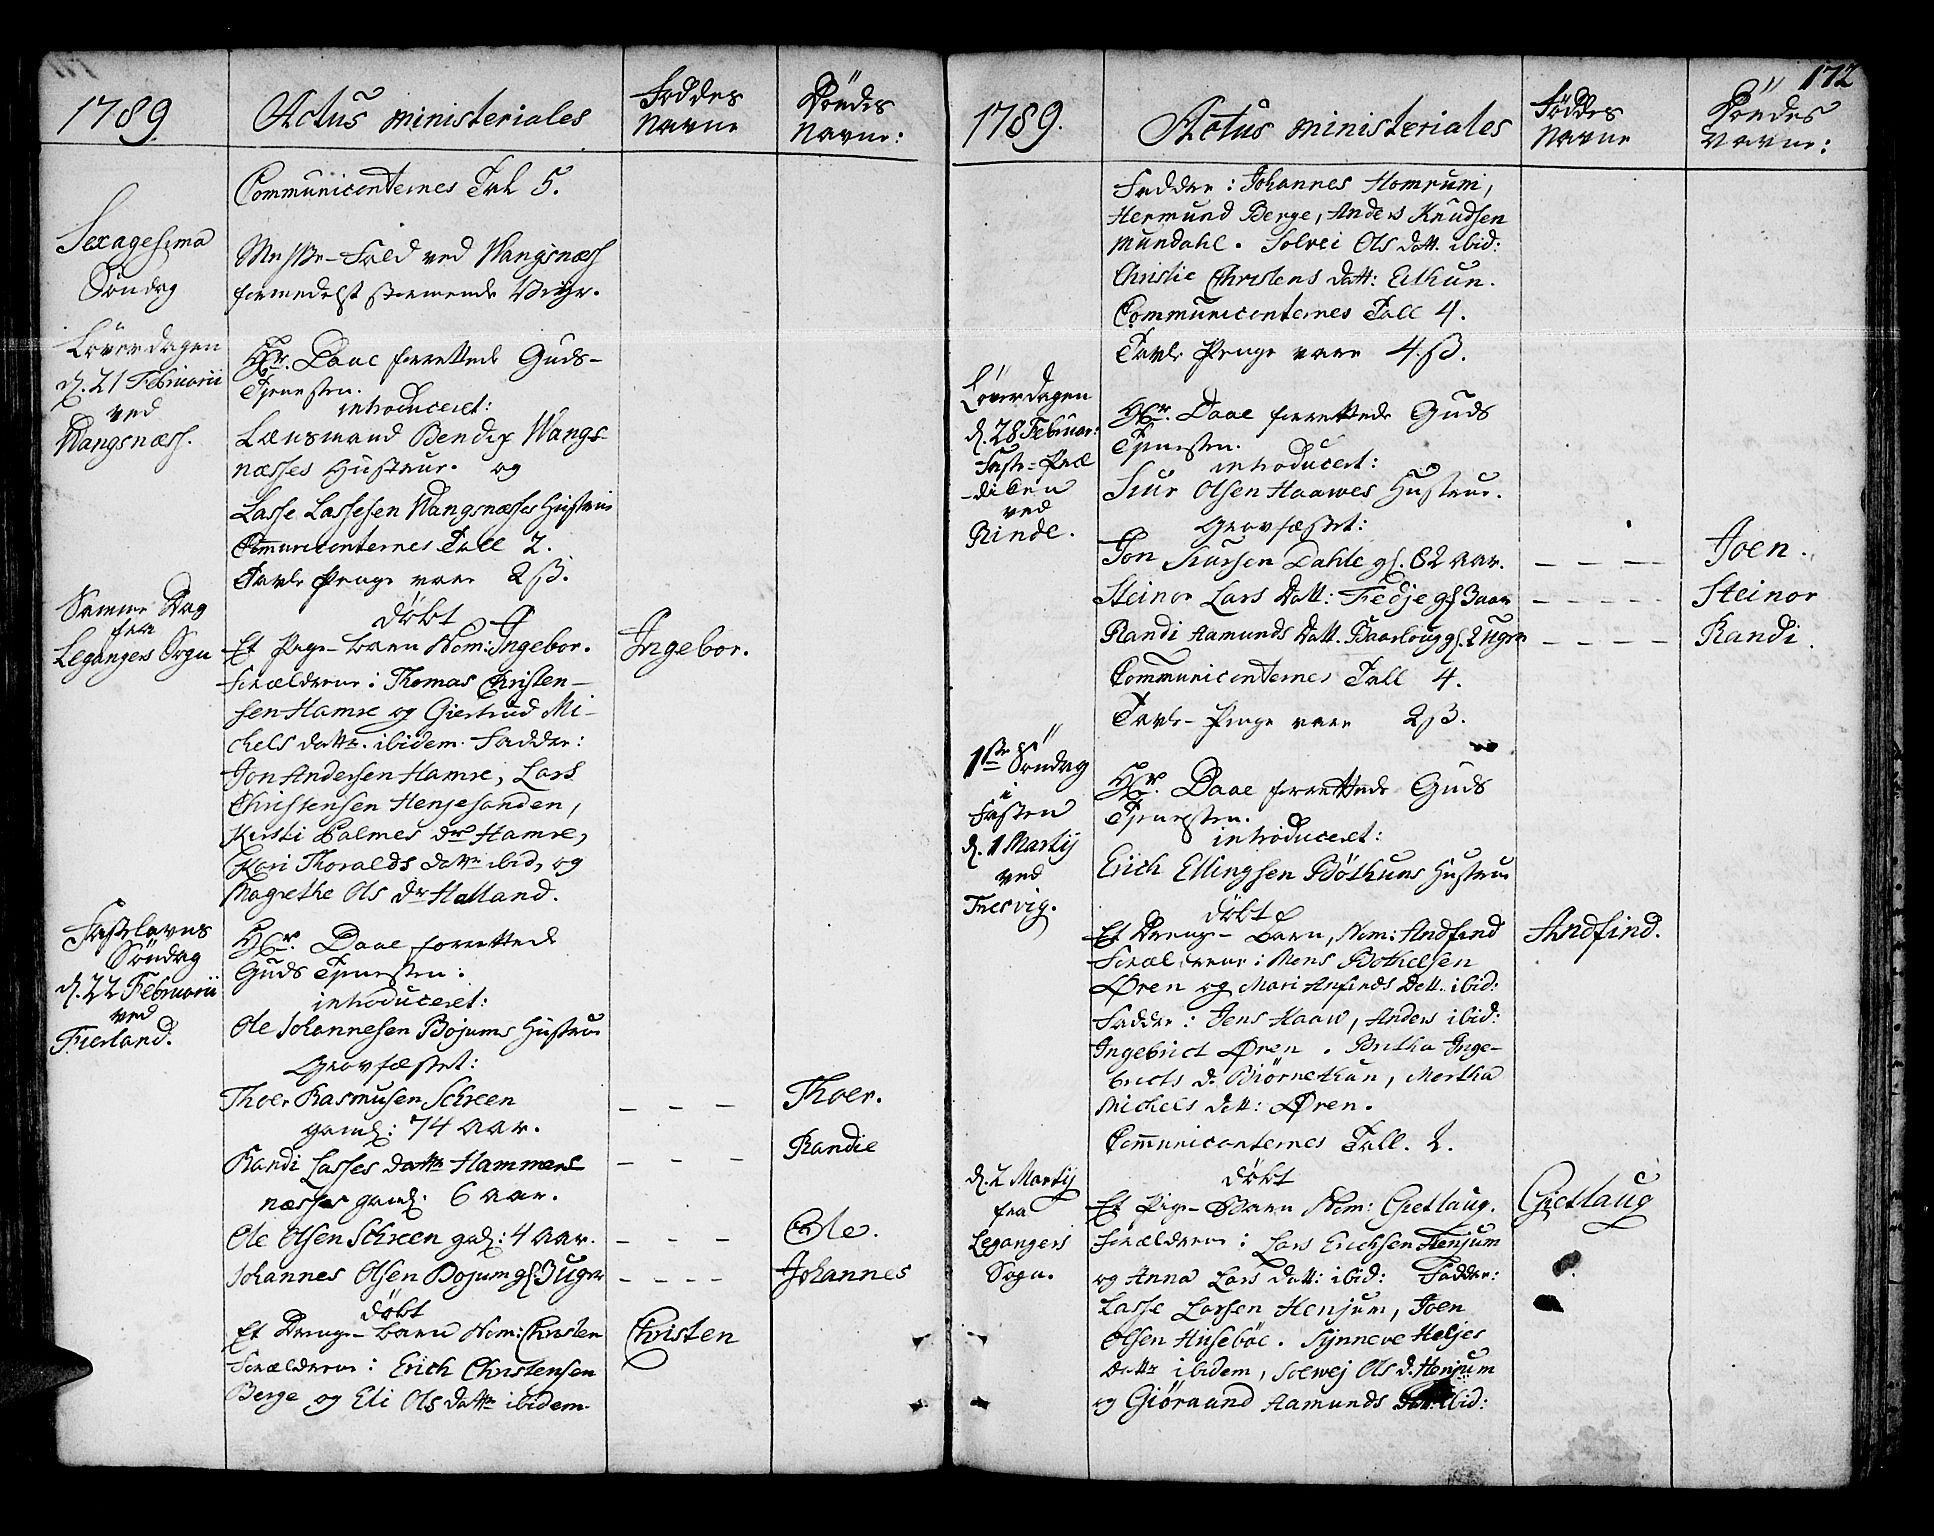 1789.
Actus ministeriales
Føddes
Navne
Dödes
Navne:
Communicanternes Tal 5.
Sexagesima
Söndag
Messe-Fald ved Wangsnæss
formedelst stormende Veyr.
Löverdagen
d. 21 Februarii
ved
Wangsnæss.
Hr. Daae forrettede Guds-
Tjenesten.
introduceret:
Lænsmand Bendix Wangs-
næsses Hustrue. og
Lasse Lassesen Wangsnæsses Hustrue
Communicanternes Tall 2.
Tavle Penge vare 2 ß.
Samme Dag
fra
Legangers Sogn
döbt
Et Pige-barn Nom: Ingebor.
Ingebor.
Forældrene: Thomas Christen-
sen Hamre og Giertrud Mi-
chels dattr. ibidem. Faddre:
Jon Andersen Hamre, Lars
Christensen Henjesanden,
Kirsti Palmes dr Hamre,
Kari Thoralds dattr ibid, og
Magrethe Ols dr Halland.
Fastelavns
Söndag
d. 22 Februarii
ved
Fierland.
Hr. Daae forrettede
Guds Tjenesten:
introduceret:
Ole Johannesen Bojums Hustrue
Gravfæstet:
Thoer Rasmusen Schreen
gaml: 74 aar.
- - -
Thoer.
Randi Lasses dattr Hammers-
næsses gaml: 6 aar.
- - -
Randie
Ole Olsen Schreen gal: 4 aar.
- - -
Ole.
Johannes Olsen Bojum gl. 3 uger
- - - -
Johannes
döbt
Et Drenge-barn Nom: Christen
Christen
Forældrene: Erich Christensen
Berge og Eli Ols dattr ibidem.
172
1789.
Actus ministeriales
Föddes
Navne
Dödes
Navne:
Faddre: Johannes Homrum,
Hermund Berge, Anders Knudsen
Mundahl. Solvei Ols datt. ibid:
Christie Christens datt: Eithun.
Communicanternes Tall 4.
Tavle Penge vare 4 ß.
Löverdagen
d. 28 Februar:
Faste-Præ
-diken
ved
Rinde.
Hr. Daae forrettede Guds
Tjenesten.
introducert:
Siur Olsen Haawes Hustrue.
Gravfæstet:
Jon Siursen Dahle gl. 82 aar.
- - - -
Joen.
Steinor Lars Datt: Fedje gl 3 aar
- - - - -
Steinor
Randi Aamunds Datt. Baarloug gl. 2 uger
- - - -
Randi.
Communicanternes Tall 4.
Tavle-Penge vare 2 ß.
1ste Söndag
i
Fasten
d. 1 Martij
ved
Fresvig.
Hr. Daae forrettede Guds
Tjenesten.
introduceret:
Erich Ellingsen Böthums Hustrue
döbt
Et Drenge-barn, Nom: Andfind
Andfind.
Forældrene: Mons Bothelsen
Øren og Mari Anfinds Datt. ibid:
Faddre: Jens Haaw, Anders ibid:
Ingebrict Øren. Britha Inge-
bricts d. Biörnethun, Martha
Michels datt: Øren.
Communicanternes Tall. 2.
d. 2 Martij
fra
Legangers
Sogn.
döbt
Et Pige-Barn Nom: Gietlaug.
Gietlaug
Forældrene: Lars Erichsen Henjum
og Anna Lars datt: ibid: Faddre:
Lasse Larsen Henjum, Joen
Olsen Huseböe. Synneve Heljes
dattr ibidem, Solwej Ols d. Henjum
og Giöraand Aamunds Datt: ibid: